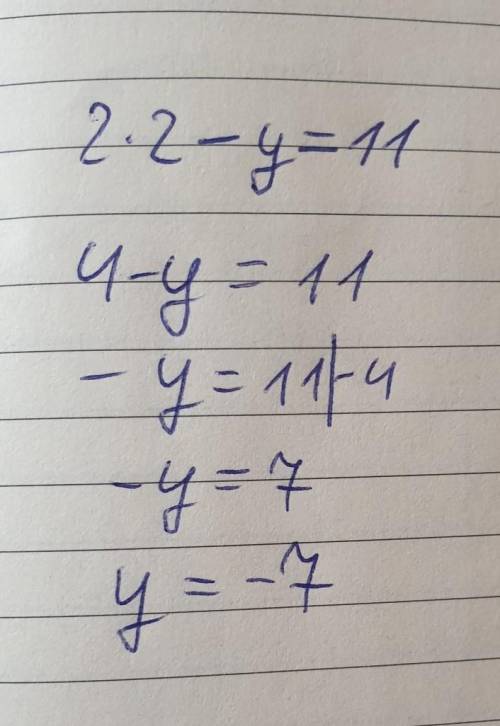 2·2-y=11
4-y=11
-y=11|-4
-y=7
y=-7